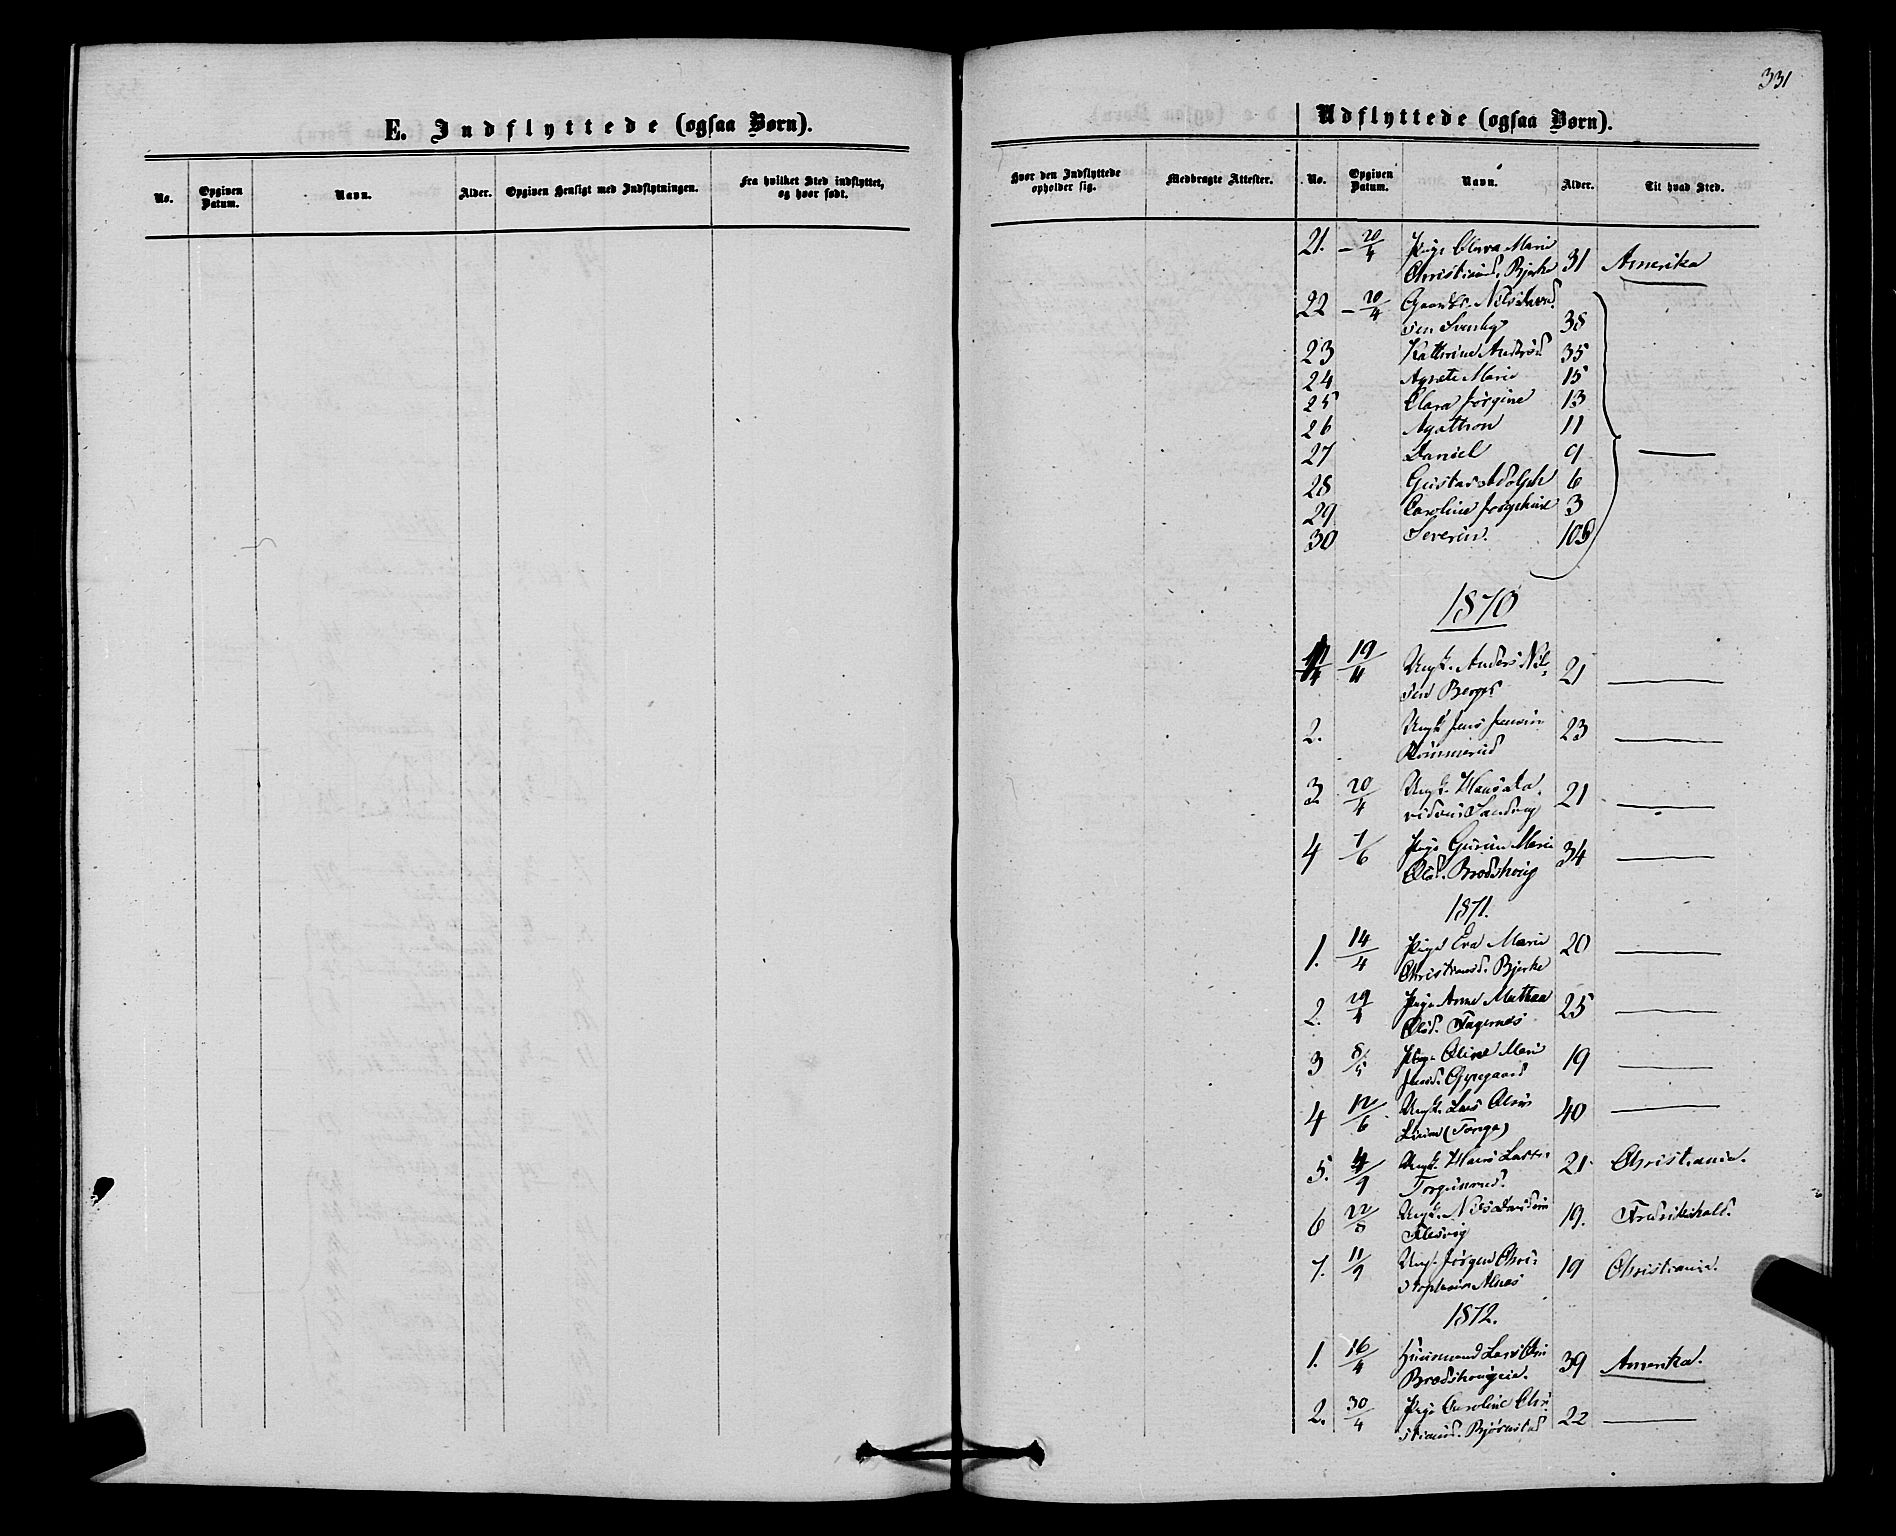 331
E. Indflyttede (ogsaa Børn).
No. Opgiven Datum. Navn. Alder. Opgiven Hensigt med Indflytningen. Fra hvilket Sted indflyttet, og hvor født.
Udflyttede (ogsaa Børn).
Hvor den Indflyttede opholder sig. Medbragte Attester. No. Opgiven Datum. Navn. Alder. Til hvad Sted.
21. – 20/4 Pige Clara Marie
Christiansd. Bjerke 31 Amerika
22 – 20/4 Gaardbr. Nils
sen 38
23 Kathrine Andersd 35
24 Agnete Marie 15
25 Clara Jørgine 13
26 Agathon 11
27 Daniel 9 —
28 Gustav Adolph 6
29 Caroline Josephine 3
30 Severin.
1870
19/4 Ungk. Anders Nil-
sen Berger 21 —
2. Ungk Jens Jensen
23 —
3. 20/4 Ungk. Hans Da-
vidsen Sandvig 21 —
4 1/6 Pige Gurine Marie
Olsd. Brødshoug 34 —
1871.
1. 14/4 Pige Eva Marie
Christiansd. Bjerke 20 —
2. 29/4 Pige Anne Mathea
Olsd. Fagernes 25 —
3 8/5 Pige Oline Marie
Jensd. 19 —
4 12/6 Ungk. Lars Olsen
(Tanga) 40 —
5. 4/9 Ungk. Hans Larsen
21 Christiania.
6 22/8 Ungk. Nils Davidsen
19. Fredrikshald.
7. 11/9 Ungk. Jørgen Chri-
stophersen Alnæs 19 Christiania.
1872.
1. 16/4 Huusmand Lars Olsen
Brødshougeie. 39 Amerika.
2. 30/4 Pige Caroline Chri-
stiansd. Bjørnstad 22 —